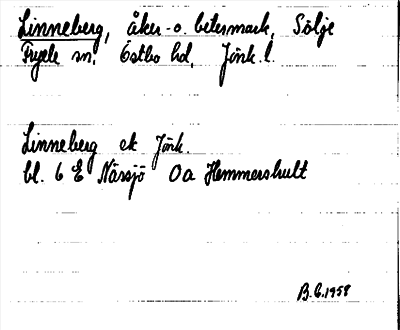 Linneberg, åker- o. betesmark, Sölje
Fryele sn. Östbo hd, Jönk. l.
Linneberg ek Jönk.
bl. 6 E Nässjö Oa Hemmershult
B.G. 1958